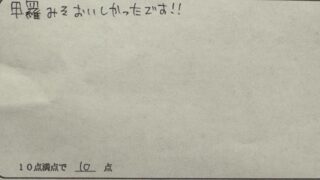 甲羅みそおいしかったです!!
10点満点で 10 点